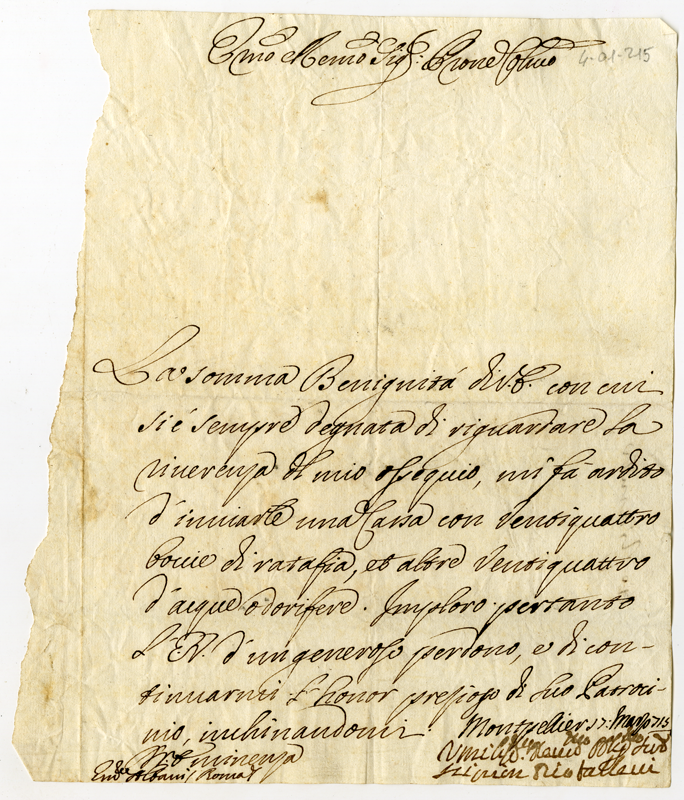 Em̃o Rem̃o Sig.r Prone Col.mo
4-01-215
La somma Benignità di V.E. con cui
si é sempre degnata di riguardare la
riverenza del mio ossequio, mi fà ardito
d'inviarle una Cassa con ventiquattro
bocie di ratafià, et altre ventiquattro
d'acque odorifere. Imploro pertanto
l'E.V. d'un generoso perdono, e di con-
tinuarmi l'honor prezioso di suo Patroci-
nio, inchinandomi Montpellier 17. Marzo 715
Vostra Eminenza
Em.o Albani, Roma